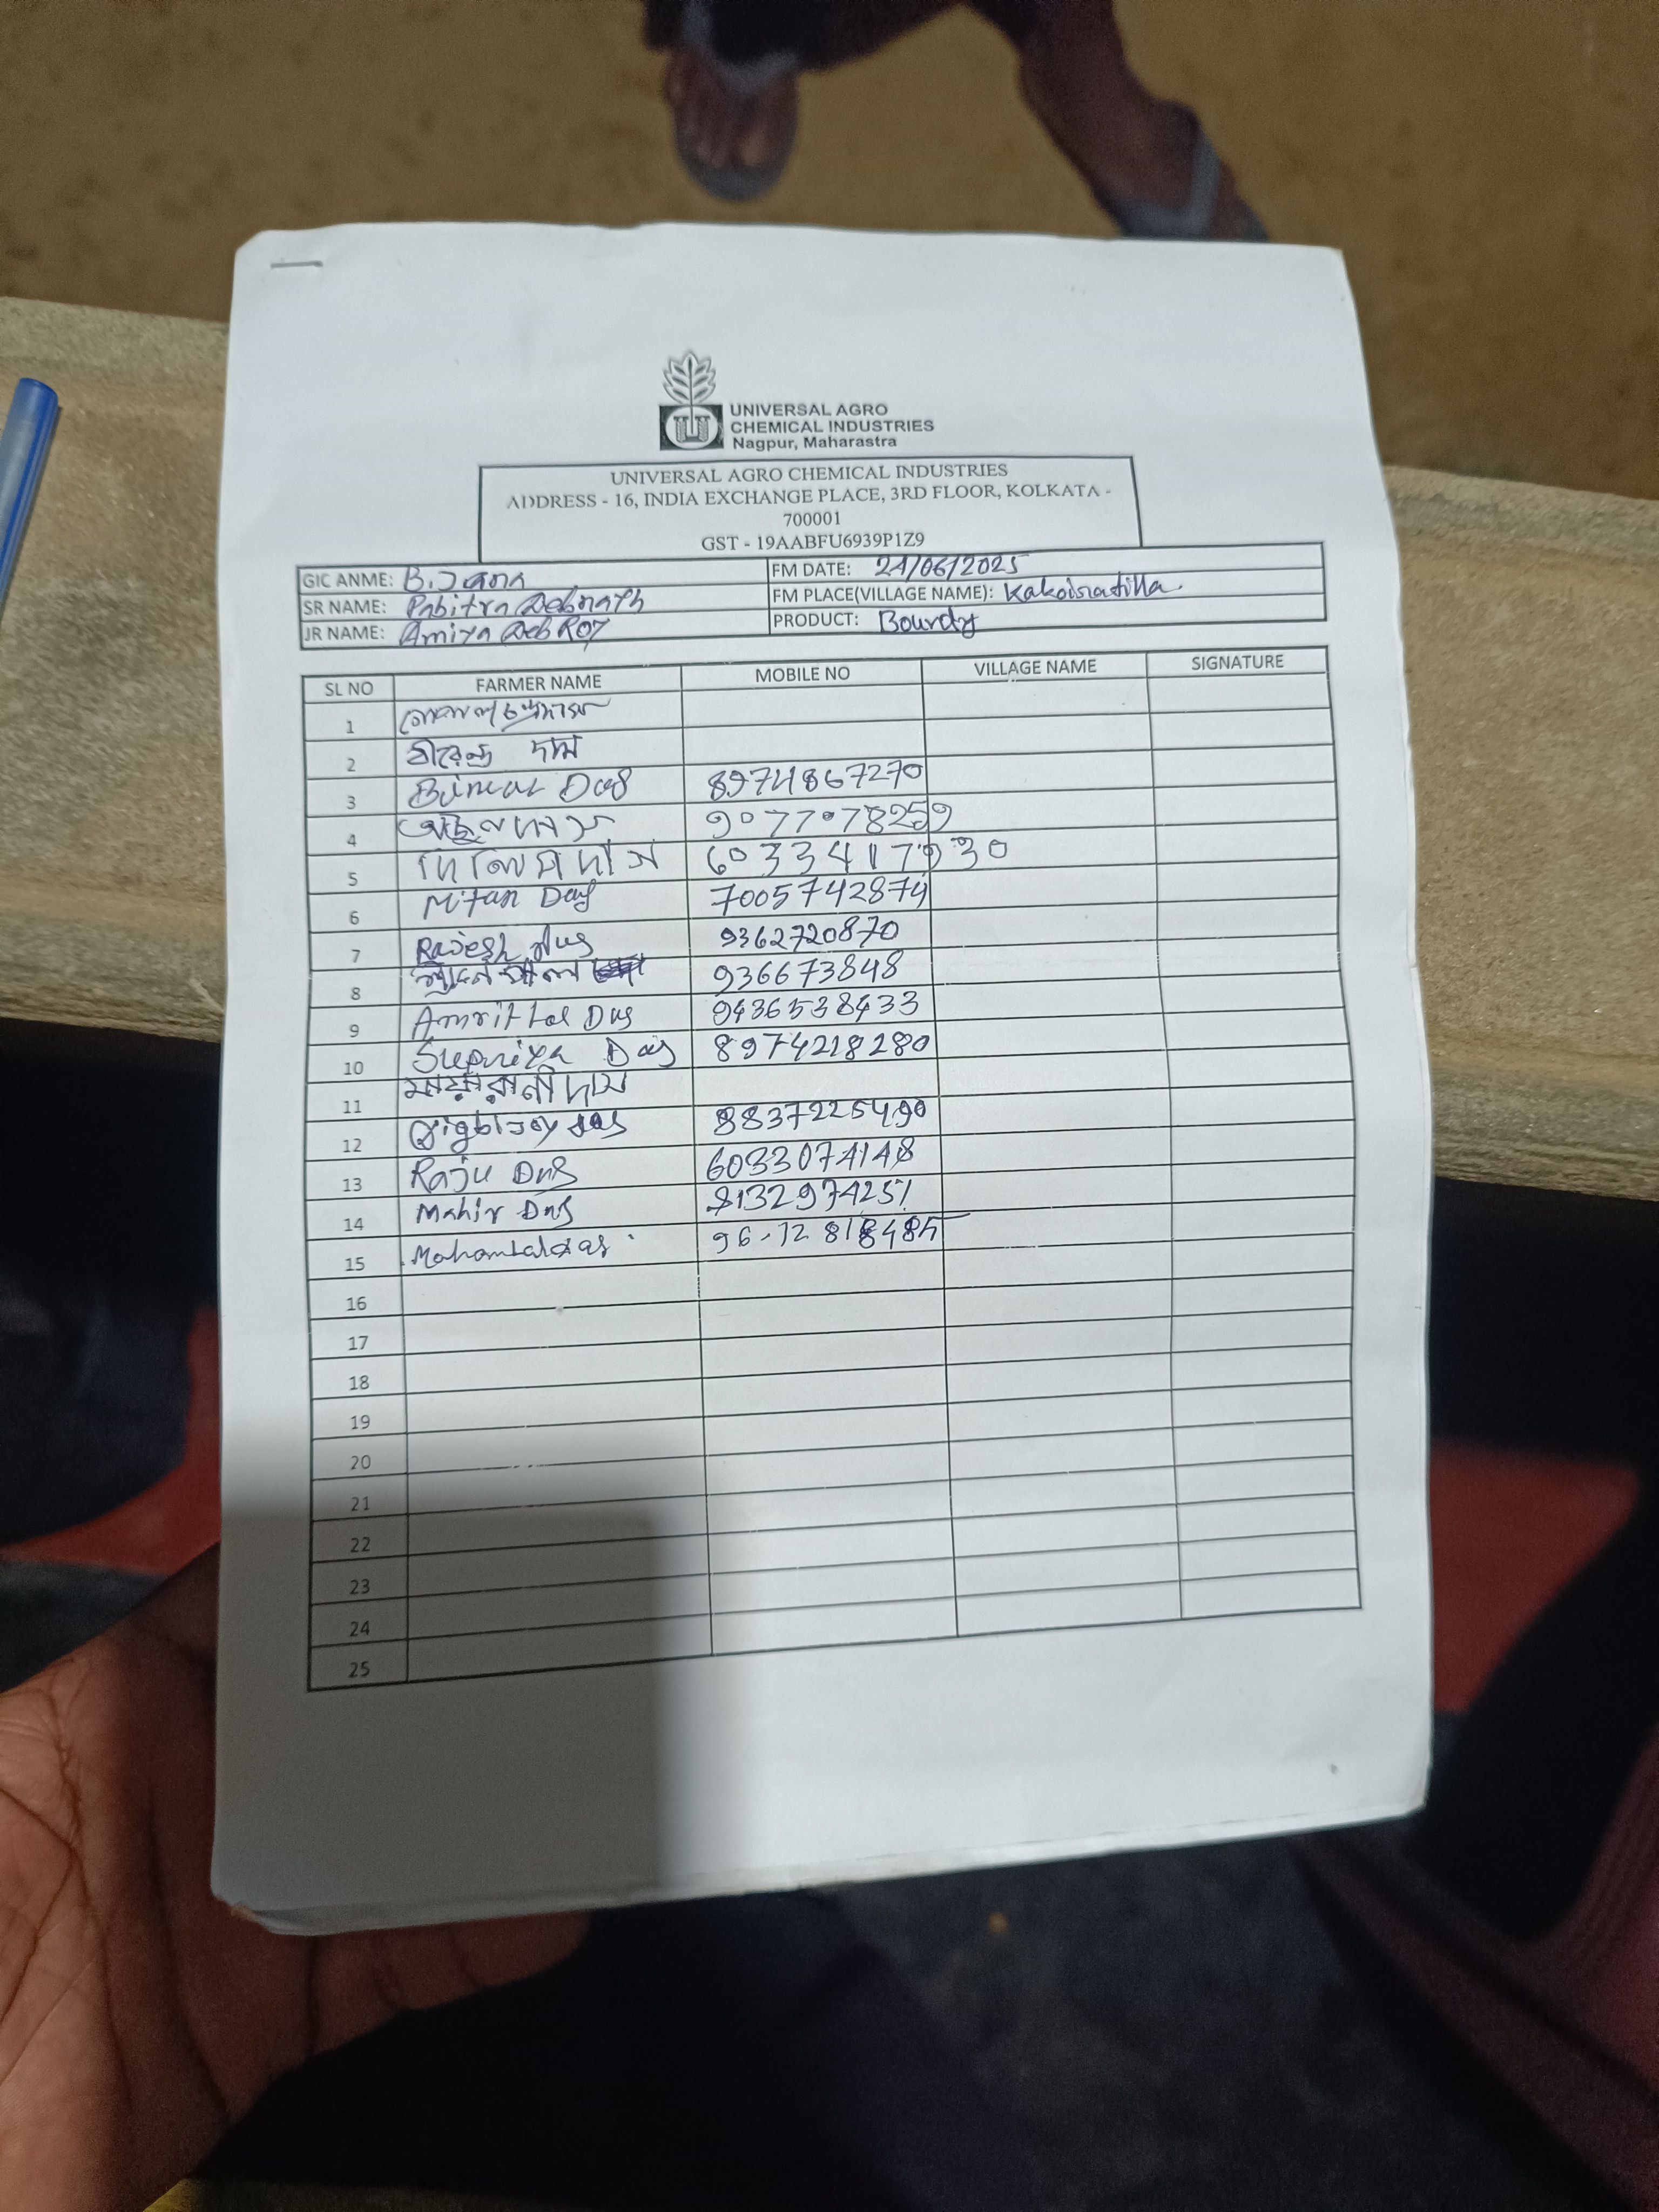 UNIVERSAL AGRO
CHEMICAL INDUSTRIES
Nagpur, Maharastra
UNIVERSAL AGRO CHEMICAL INDUSTRIES
ADDRESS - 16, INDIA EXCHANGE PLACE, 3RD FLOOR, KOLKATA -
700001
GST - 19AABFU6939P1Z9
GIC ANME: B. Jana FM DATE: 24/06/2025
SR NAME: Pabitra Debnath FM PLACE(VILLAGE NAME):
JR NAME: Amiya Deb Roy PRODUCT: Bourdy
SL NO FARMER NAME MOBILE NO VILLAGE NAME SIGNATURE
1
2 বীরেন্দ্র দাস
3 Bimal Das 8974867270
4 দাস 9077078259
5 দাস
6 Mitan Das 7005742874
7 Rajesh das 9362720870
8 936673848
9 Amrit lal Das 9436538433
10 Supriya Das 8974218280
11 মায়ারানী দাস
12 Digbijoy das 8837225490
13 Raju Das 6033074148
14 Mahir Das 8132974251
15
16
17
18
19
20
21
22
23
24
25